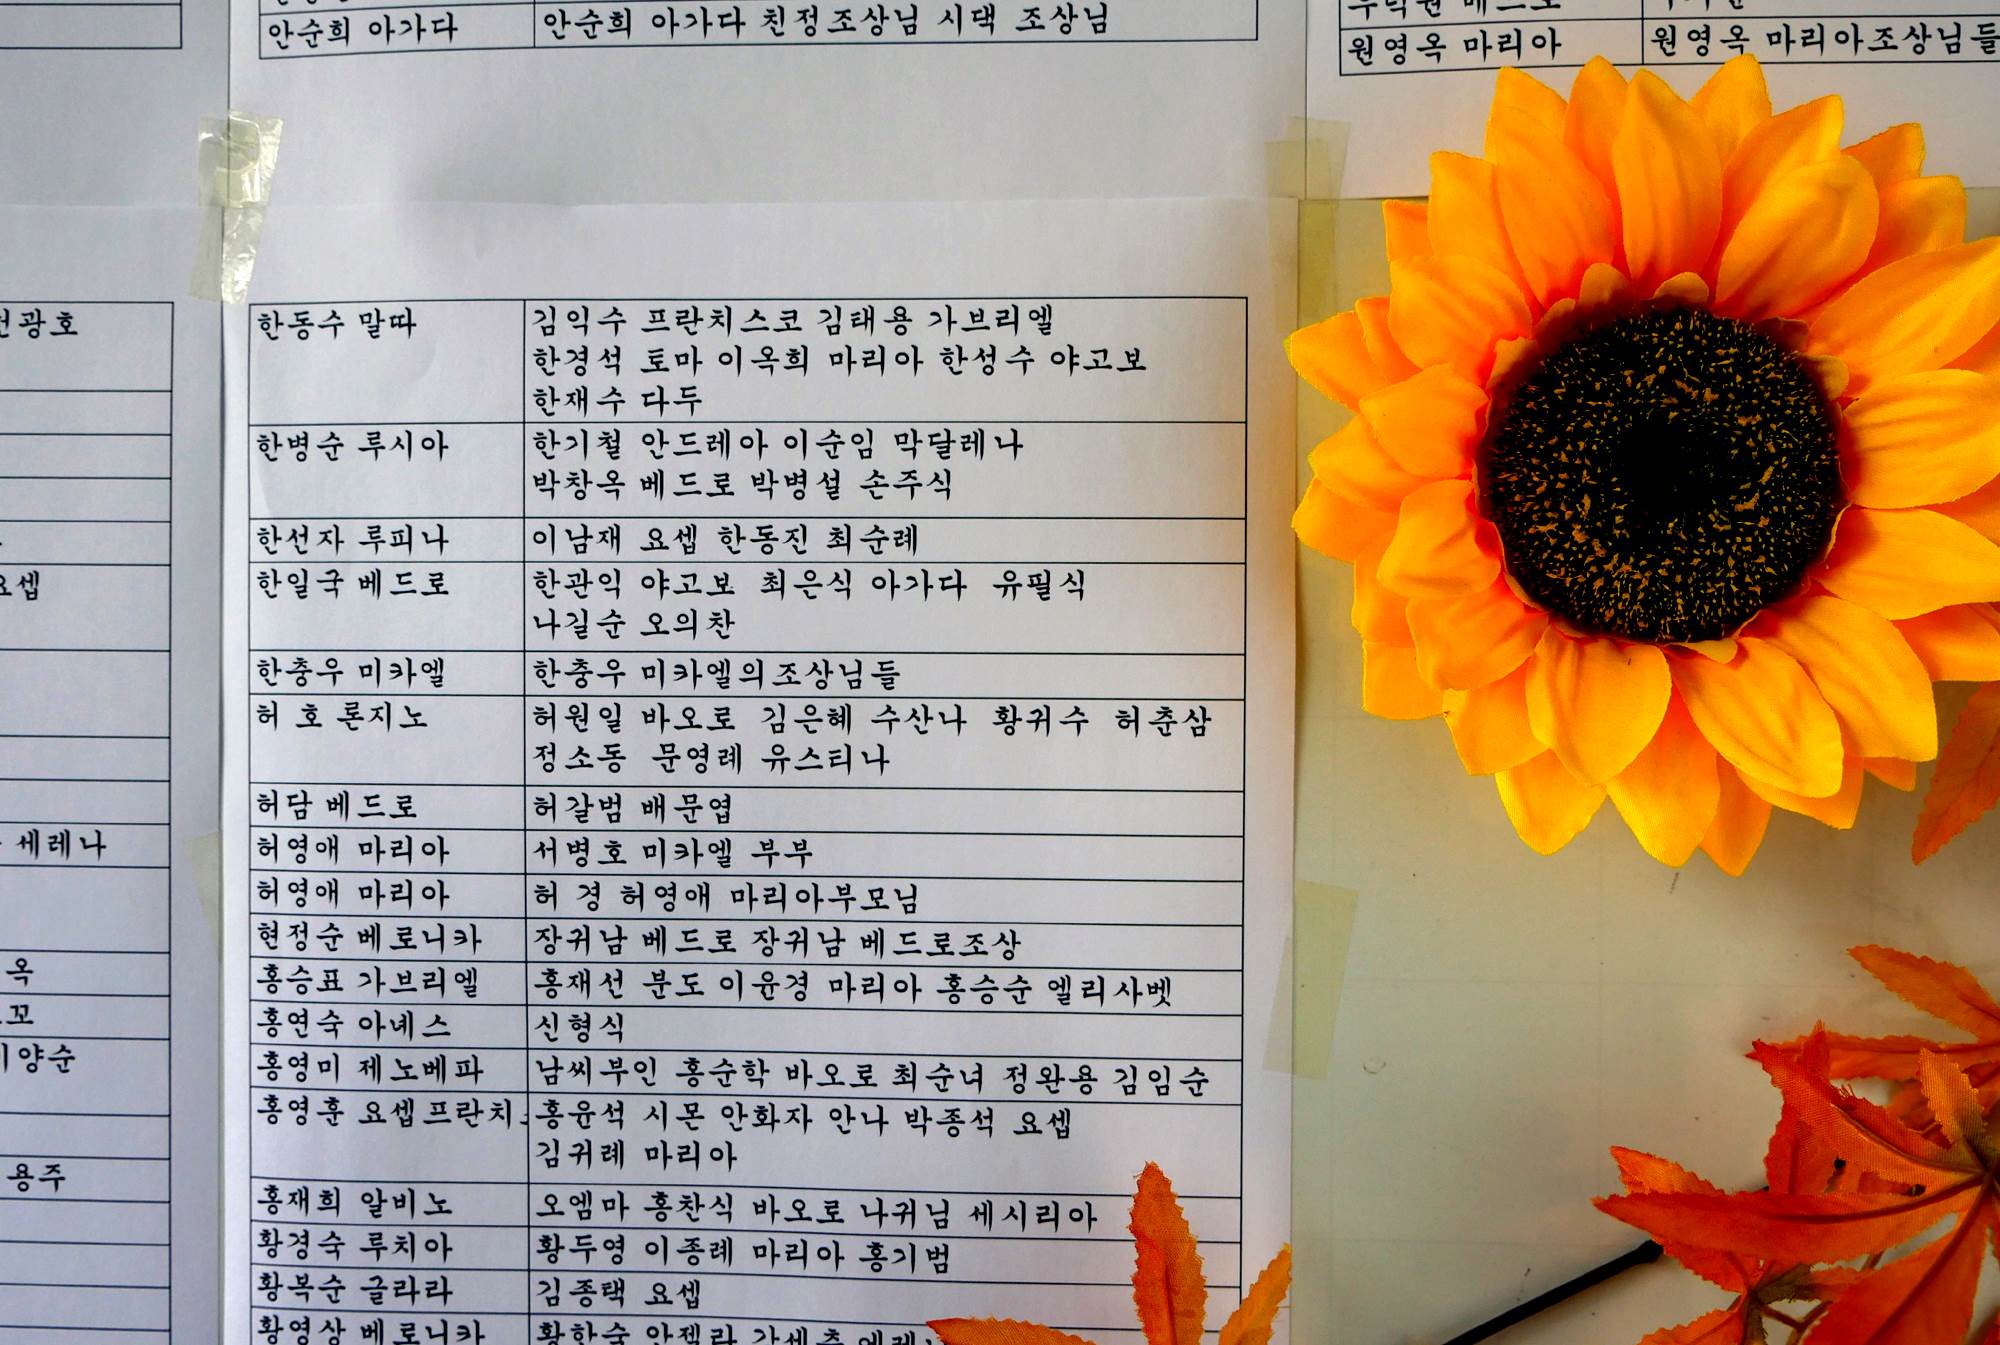 안순희 아가다 안순희 아가다 친정조상님 시댁 조상님
원영옥 마리아 원영옥 마리아조상님들
광호
요셉
세레나
옥
꼬
양순
용주
한동수 말따 김익수 프란치스코 김태용 가브리엘
한경석 토마 이옥희 마리아 한성수 야고보
한재수 다두
한병순 루시아 한기철 안드레아 이순임 막달레나
박창옥 베드로 박병설 손주식
한선자 루피나 이남재 요셉 한동진 최순례
한일국 베드로 한관익 야고보 최은식 아가다 유필식
나길순 오의찬
한충우 미카엘 한충우 미카엘의조상님들
허 호 론지노 허원일 바오로 김은혜 수산나 황귀수 허춘삼
정소동 문영례 유스티나
허담 베드로 허갈범 배문엽
허영애 마리아 서병호 미카엘 부부
허영애 마리아 허 경 허영애 마리아부모님
현정순 베로니카 장귀남 베드로 장귀남 베드로조상
홍승표 가브리엘 홍재선 분도 이윤경 마리아 홍승순 엘리사벳
홍연숙 아녜스 신형식
홍영미 제노베파 남씨부인 홍순학 바오로 최순녀 정완용 김임순
홍영훈 요셉프란치 홍윤석 시몬 안화자 안나 박종석 요셉
김귀례 마리아
홍재희 알비노 오엠마 홍찬식 바오로 나귀님 세시리아
황경숙 루치아 황두영 이종례 마리아 홍기범
황복순 글라라 김종택 요셉
황영상 베로니카 황한숙 안젤라